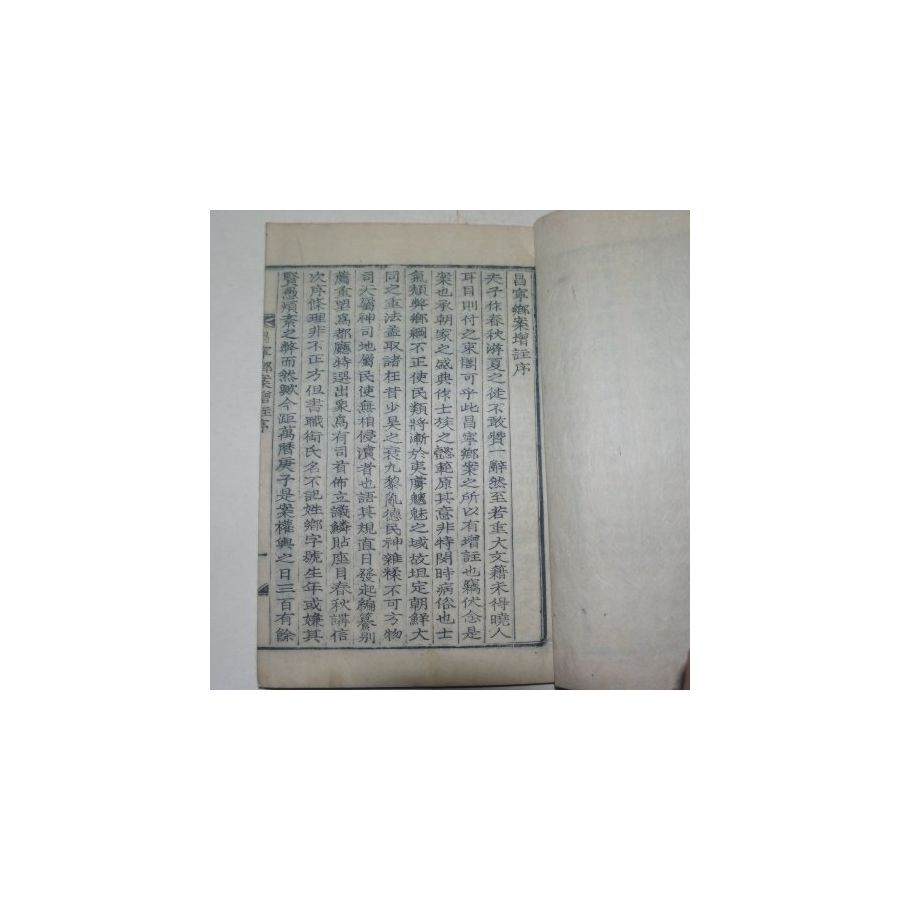 昌寧鄕案增註序
夫子作春秋游夏之徒不敢贊一辭然至若垂大文籍未得曉人
耳目則付之束閣可乎此昌寧鄕案之所以有增註也竊伏念是
案也承朝家之盛典作士族之懿範原其意非特閔時病俗也士
氣頹弊鄕綱不正使民類將漸於夷虜魑魅之域故坦定朝鮮大
同之重法盖取諸在昔少昊之衰九黎亂德民神雜糅不可方物
司天屬神司地屬民使無相侵瀆者也語其規直日發起編纂別
薦重望爲都廳特選出衆爲有司首佈立議鱗貼座目春秋講信
次序條理非不正方但書職銜氏名不記姓鄕字號生年或嫌其
賢愚類紊之弊而然歟今距萬曆庚子是案權輿之日三百有餘
昌寧鄕案增註序
一